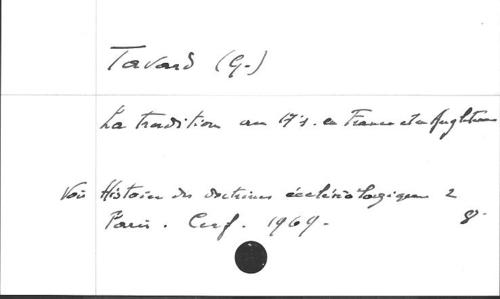 Tavard (G.)
La tradition au 17's. en France et en Angleterre
Voir Histoire des doctrines ecclésiologiques 2
Paris. Cerf. 1969. 8°